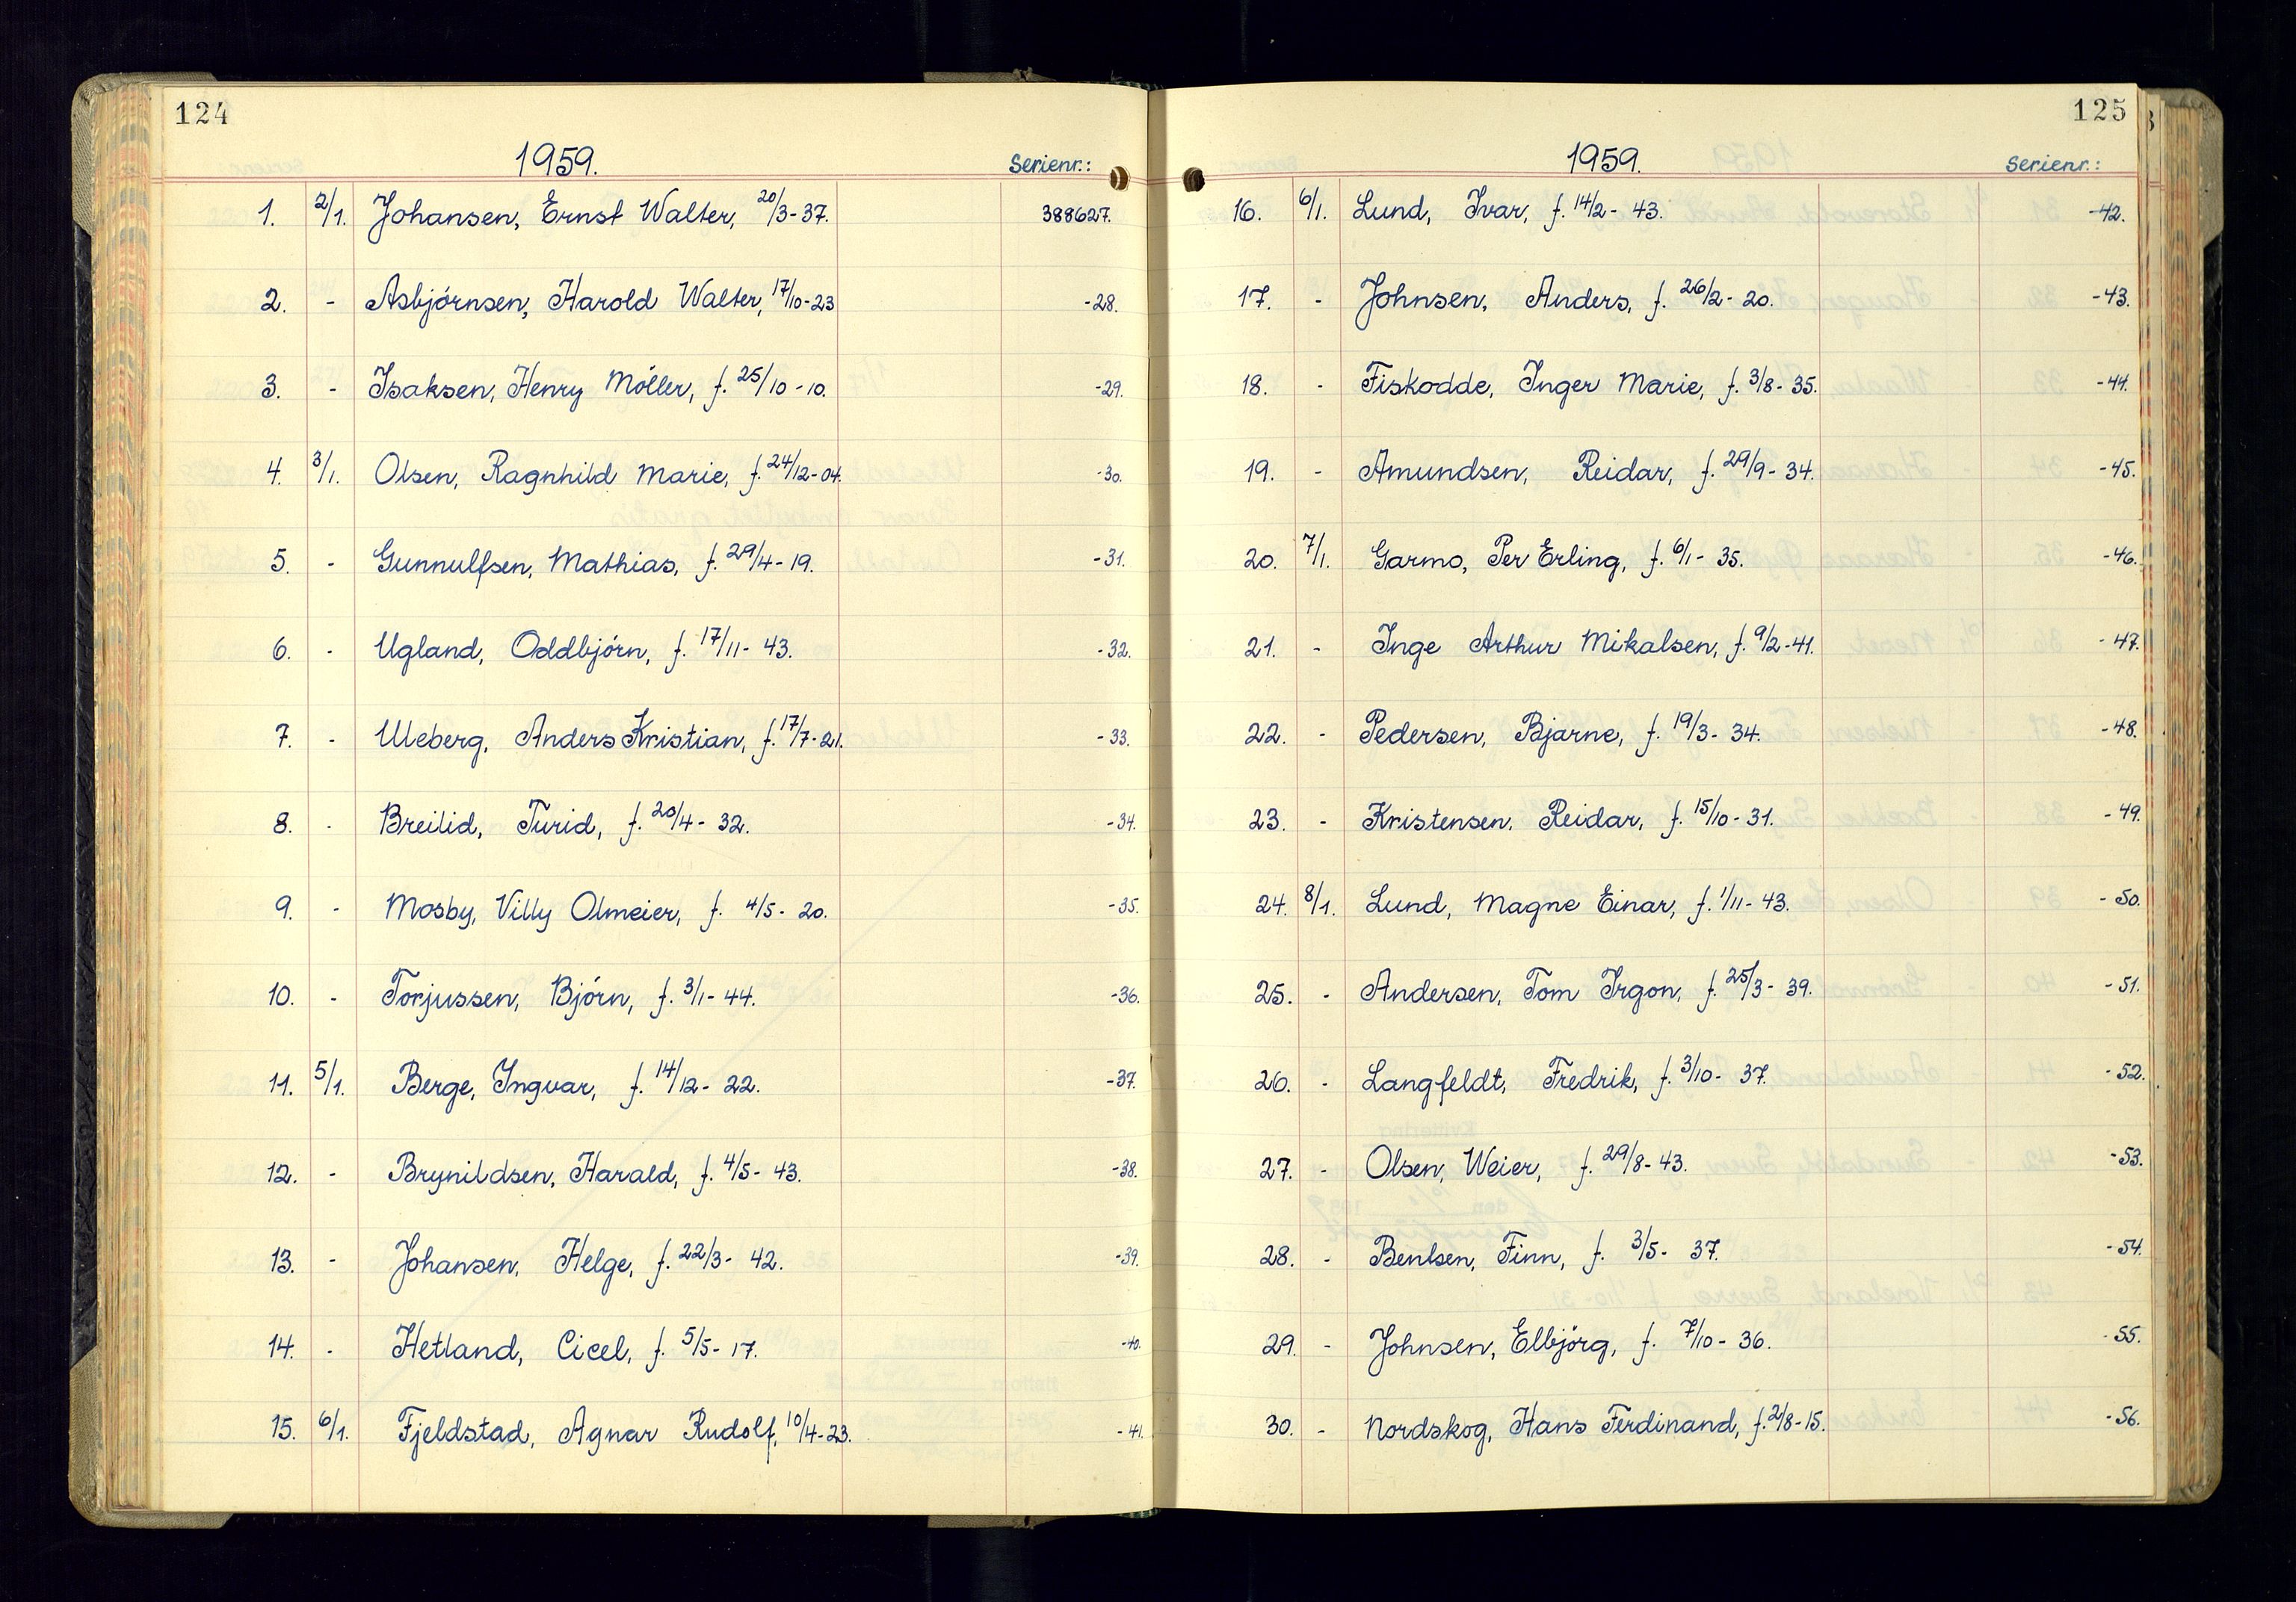 124
1959. Serienr.:
1. 2/1. Johansen, Ernst Walter, 20/3-37. 388627.
2. - Asbjörnsen, Harold Walter, 17/10-23 -28.
3. - Isaksen, Henry Möller, f. 25/10-10. -29.
4. 3/1. Olsen, Ragnhild Marie, f. 24/12-04. -30.
5. - Gunnulfsen, Mathias, f. 29/4-19. -31.
6. - Ugland, Oddbjörn, f. 17/11-43. -32.
7. - Uleberg, Anders Kristian, f. 17/7-21. -33.
8. - Breilid, Turid, f. 20/4-32. -34.
9. - Mosby, Villy Olmeier, f. 4/5-20. -35.
10. - Torjussen, Björn, f. 3/1-44. -36.
11. 5/1. Berge, Ingvar, f. 14/12-22. -37.
12. - Brynildsen, Harald, f. 4/5-43. -38.
13. - Johansen, Helge, f. 22/3-42. -39.
14. - Hetland, Cicel, f. 5/5-17. -40.
15. 6/1. Fjeldstad, Agnar Rudolf, 10/4-23. -41.
125
1959. Serienr.:
16. 6/1. Lund, Ivar, f. 14/2-43. -42.
17. - Johnsen, Anders, f. 26/2-20. -43.
18. - Fiskodde, Inger Marie, f. 3/8-35. -44.
19. - Amundsen, Reidar, f. 29/9-34. -45.
20. 7/1. Garmo, Per Erling, f. 6/1-35. -46.
21. - Inge Arthur Mikalsen, f. 9/2-41. -47.
22. - Pedersen, Bjarne, f. 19/3-34. -48.
23. - Kristensen, Reidar, f. 15/10-31. -49.
24. 8/1. Lund, Magne Einar, f. 1/11-43. -50.
25. - Andersen, Tom Irgon, f. 25/3-39. -51.
26. - Langfeldt, Fredrik, f. 3/10-37. -52.
27. - Olsen, Weier, f. 29/8-43. -53.
28. - Bentsen, Finn, f. 3/5-37. -54.
29. - Johnsen, Elbjörg, f. 7/10-36. -55.
30. - Nordskog, Hans Ferdinand, f. 2/8-15. -56.